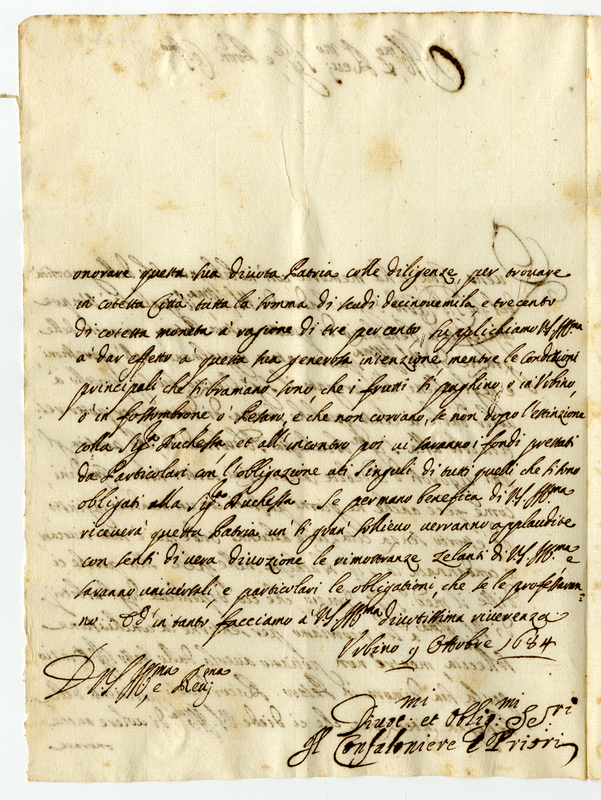 onorare questa sua divota Patria colle diligenze, per trovare
in cotesta Città tutta la somma di scudi decinovemila, e trecento
di cotesta moneta à ragione di tre per cento, supplichiamo VS Ill.ma
a' dar effetto a questa sua generosa intenzione, mentre le Condizioni
principali, che si bramano sono, che i frutti si paghino, ò in Urbino,
ò in fossombrone, ò Pesaro, e che non corrano, se non dopo l'estinzione
colla Sig.ra Duchessa, et all'incontro poi vi saranno i fondi prestati
da Particolari con l'obligazione uti singuli di tutti quelli che si sono
obligati alla Sig.ra Duchessa. Se per mano benefica di VS Ill.ma
riceverà questa Patria un' si gran sollievo, verranno applaudite
con sensi di vera divozione le rimostranze zelanti di VS Ill.ma e
saranno universali, e particolari le obligationi, che se le professaran=
no. Ed in tanto facciamo à VS Ill.ma divotissima riverenza
Urbino 9 Ottobre 1684
D VS Ill.ma, e Rev.ma
Divot.mi et Oblig.mi Se.ri
Il Confaloniere e Priori